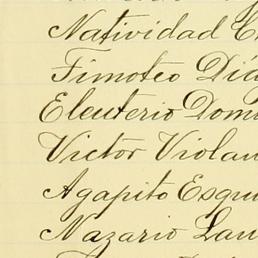 Natividad C
Timoteo Día
Eleuterio Dom
Victor Violan
Agapito Esqu
Nazario Lau